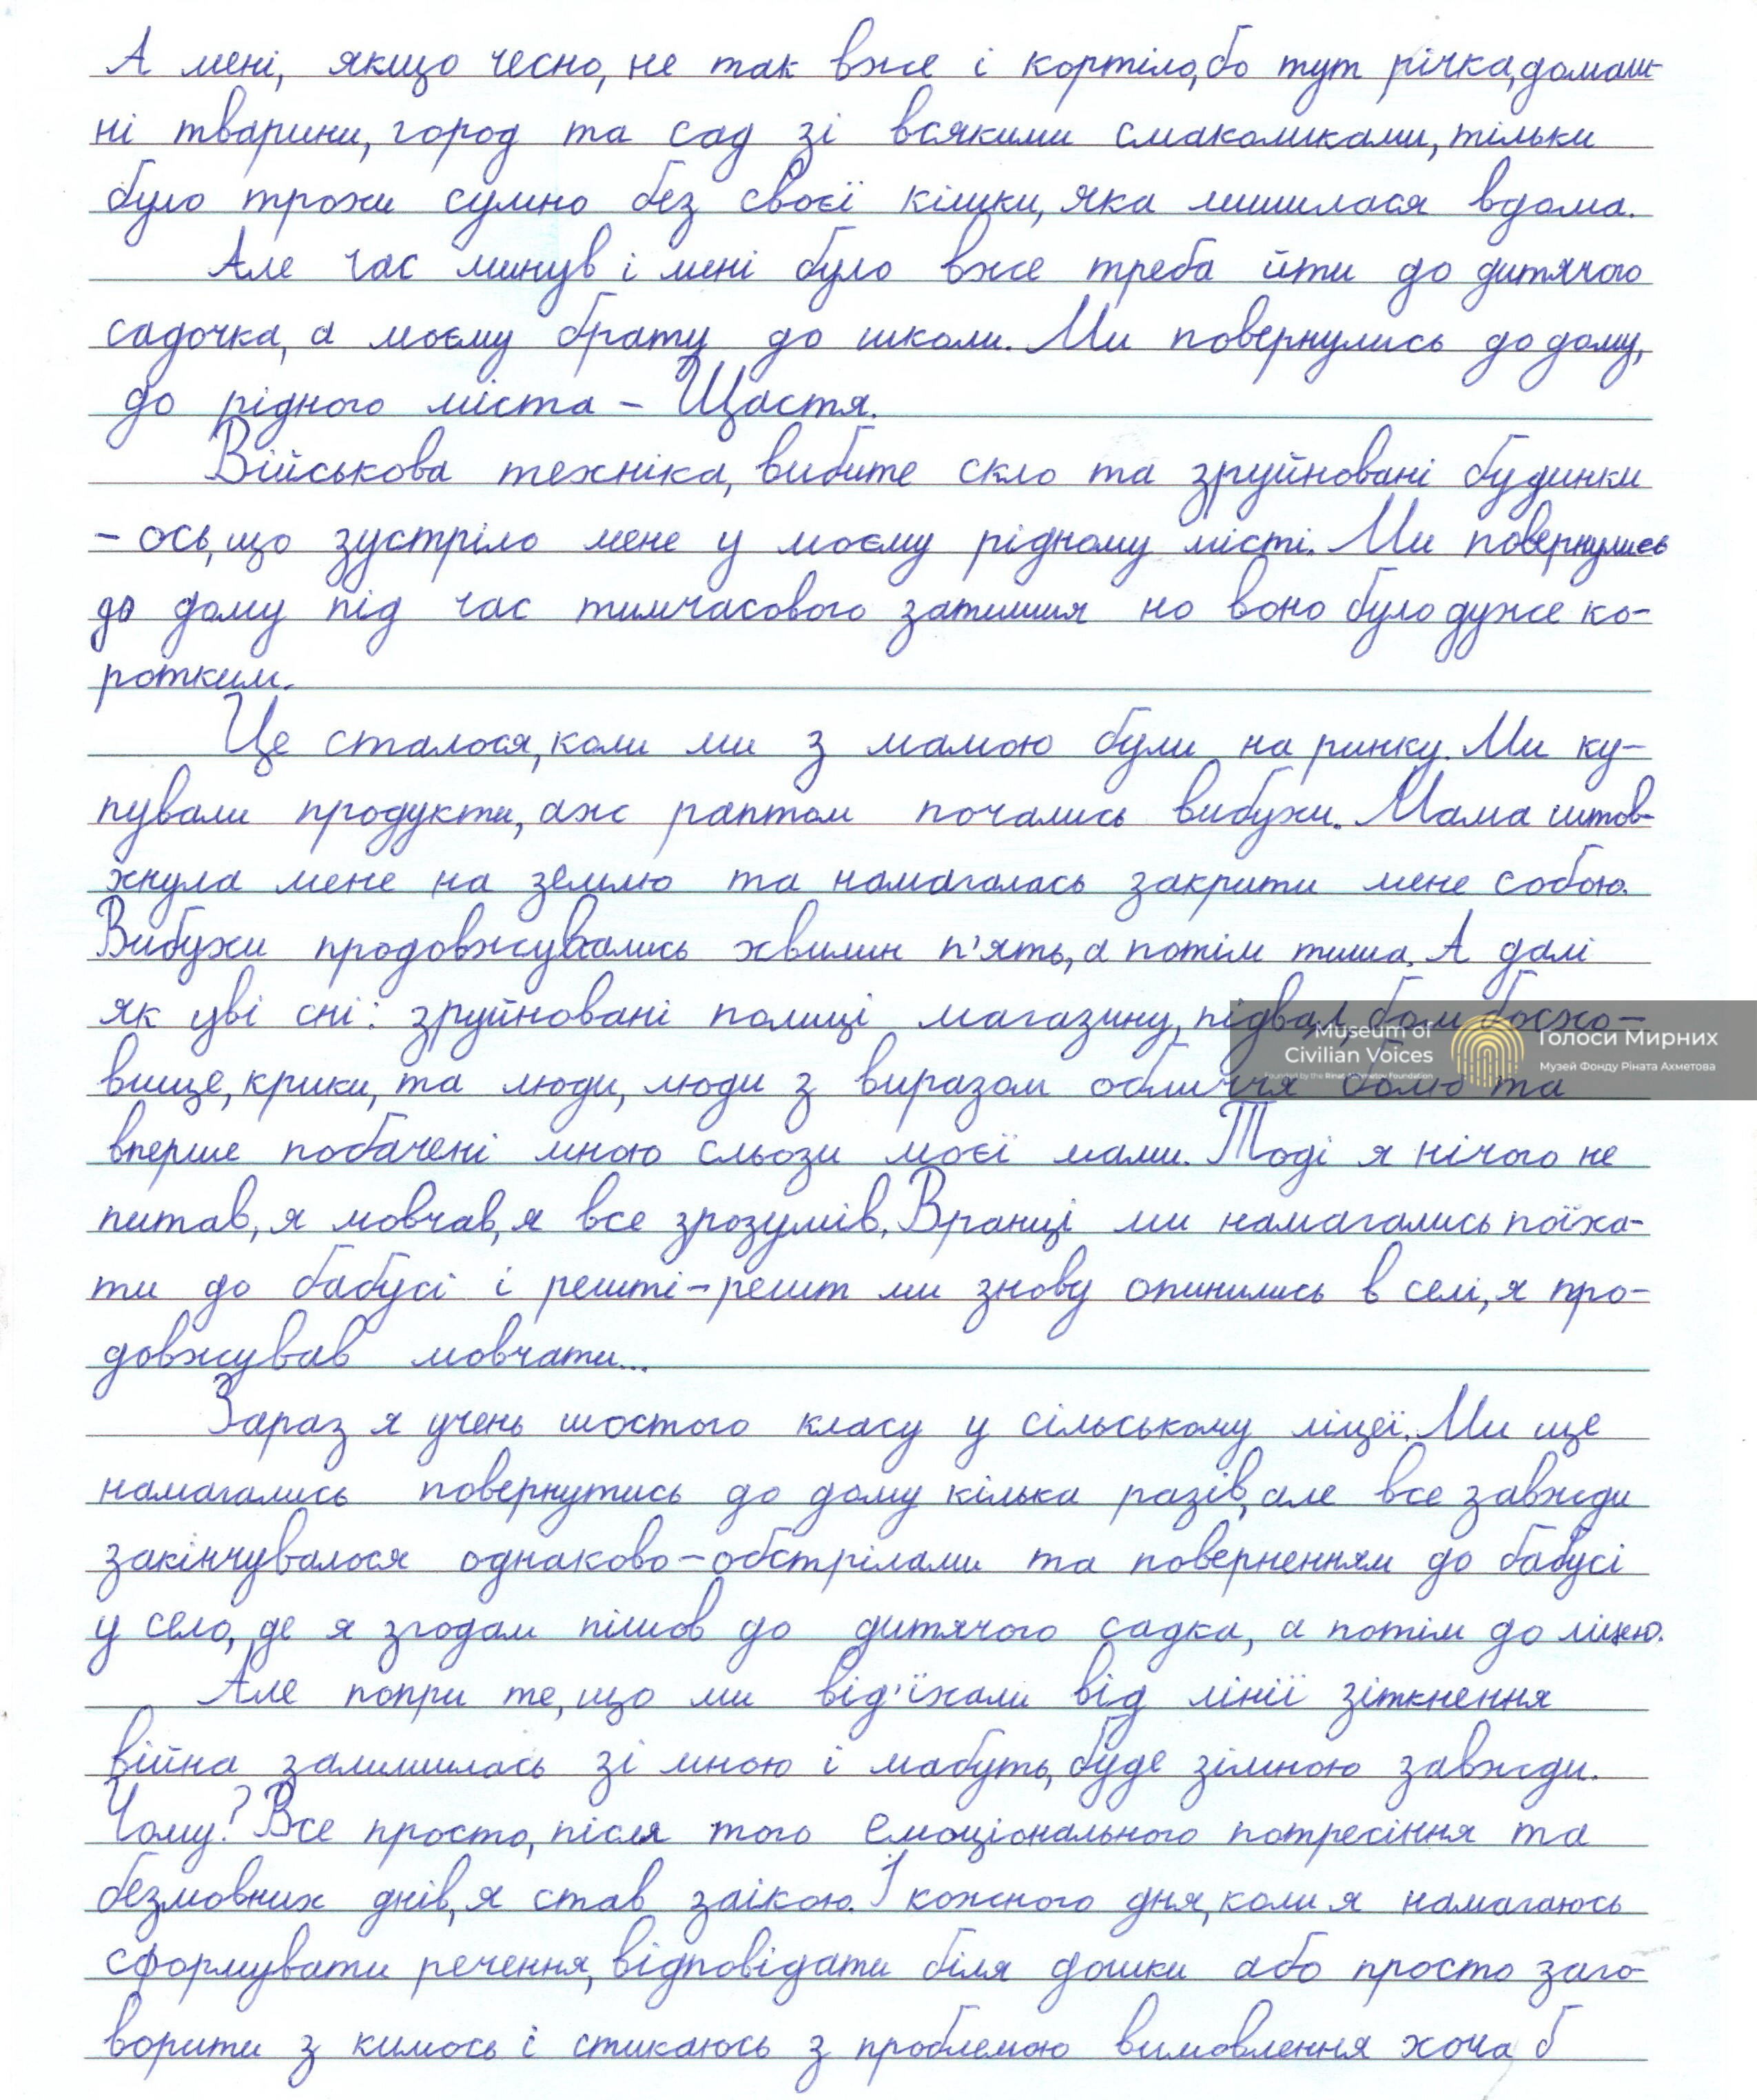 А мені, якщо чесно, не так вже і кортіло, бо тут річка, домаш-
ні тварини, город та сад зі всякими смаколиками, тільки
було трохи сумно без своєї кішки, яка лишилася вдома.
Але час минув і мені було вже треба йти до дитячого
садочка, а моєму брату до школи. Ми повернулись до дому,
до рідного міста - Щастя.
Військова техніка, вибите скло та зруйновані будинки
- ось, що зустріло мене у моєму рідному місті. Ми повернулись
до дому під час тимчасового затишшя но воно було дуже ко-
ротким.
Це сталося, коли ми з мамою були на ринку. Ми ку-
пували продукти, аж раптом почались вибухи. Мама штов-
хнула мене на землю та намагалась закрити мене собою.
Вибухи продовжувались хвилин п'ять, а потім тиша. А далі
як уві сні: зруйновані полиці магазину, підвал, бомбосхо-
вище, крики, та люди, люди з виразом обличчя болю та
вперше побачені мною сльози моєї мами. Тоді я нічого не
питав, я мовчав, я все зрозумів. Вранці ми намагались поїха-
ти до бабусі і решті-решт ми знову опинились в селі, я про-
довжував мовчати...
Зараз я учень шостого класу у сільському ліцеї. Ми ще
намагались повернутись до дому кілька разів, але все завжди
закінчувалося однаково - обстрілами та поверненням до бабусі
у село, де я згодом пішов до дитячого садка, а потім до ліцею.
Але попри те, що ми від'їхали від лінії зіткнення
війна залишилась зі мною і мабуть, буде зімною завжди.
Чому? Все просто, після того емоціонального потресіння та
безмовних днів, я став заікою. І кожного дня, коли я намагаюсь
сформувати речення, відповідати біля дошки або просто заго-
ворити з кимось і стикаюсь з проблемою вимовлення хоча б
Museum of
Civilian Voices
Founded by the Rinat Akhmetov Foundation
Голоси Мирних
Музей Фонду Ріната Ахметова